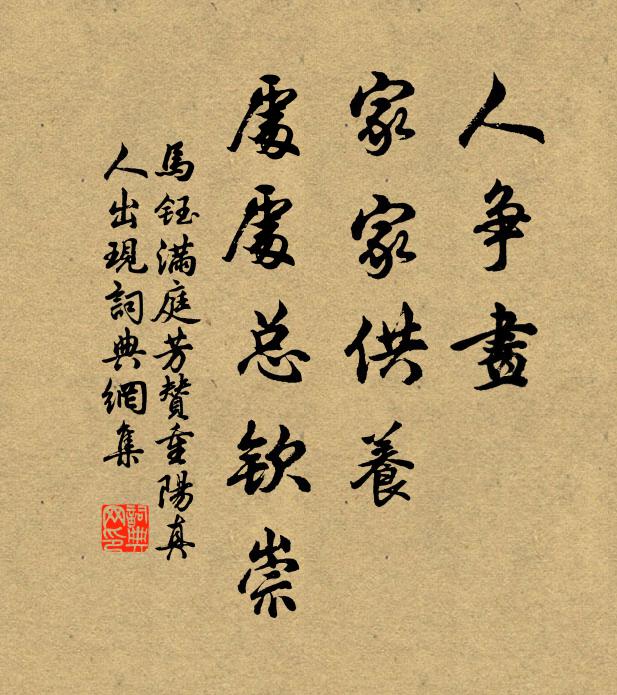 人争畫
家家供養
處處总欽崇
馬鈺滿庭芳贊重陽真
人出現詞典網集
詞典網印